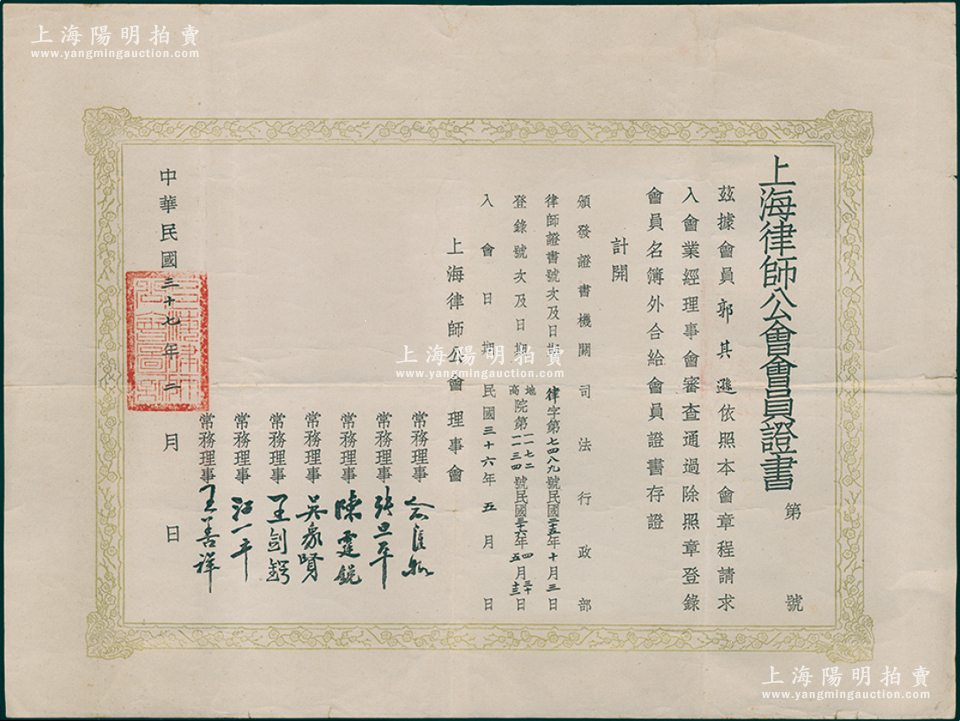 上海陽明拍賣
www.yangmingauction.com
上海律師公會會員證書
第 號
茲據會員郭其遜依照本會章程請求
入會業經理事會審查通過除照章登錄
會員名簿外合給會員證書存證
計開
頒發證書機關司法行政部
律師證書號次及日期律字第七四八九號民國廿五年十月三日
登錄號次及日期 地高院第一一七二一一三四號民國卅六年四五月三十廿三日
入會日期民國三十六年五月 日
上海律師公會理事會
常務理事
常務理事
常務理事陳霆銳
常務理事吳象賢
常務理事王劍鍔
常務理事江一平
常務理事王善祥
中華民國三十七年二月 日
上海陽明拍賣
www.yangmingauction.com
上海陽明拍賣
www.yangmingauction.com